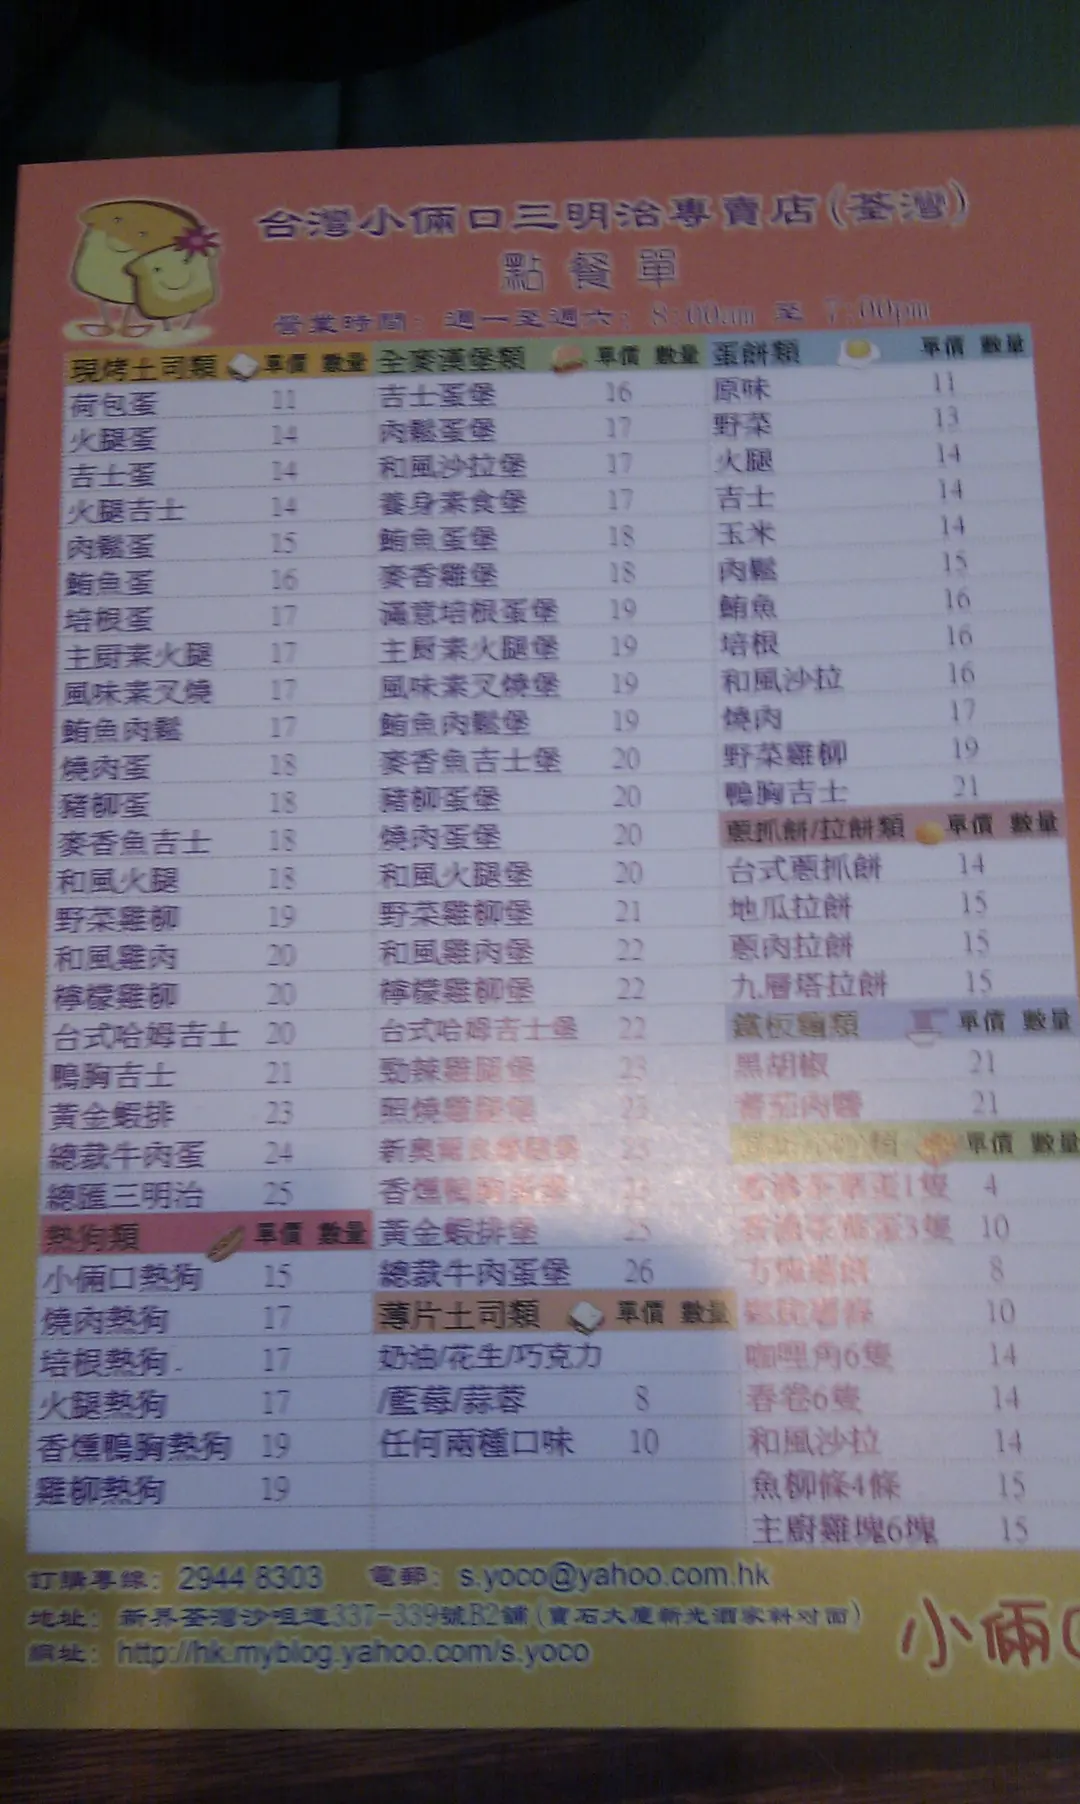 台灣小倆口三明治專賣店(荃灣)
點餐單
營業時間: 週一至週六: 8:00am 至 7:00pm
現烤土司類 單價 數量
荷包蛋 11
火腿蛋 14
吉士蛋 14
火腿吉士 14
肉鬆蛋 15
鮪魚蛋 16
培根蛋 17
主厨素火腿 17
風味素叉燒 17
鮪魚肉鬆 17
燒肉蛋 18
豬柳蛋 18
麥香魚吉士 18
和風火腿 18
野菜雞柳 19
和風雞肉 20
檸檬雞柳 20
台式哈姆吉士 20
鴨胸吉士 21
黃金蝦排 23
總裁牛肉蛋 24
總匯三明治 25
熱狗類 單價 數量
小倆口熱狗 15
燒肉熱狗 17
培根熱狗 17
火腿熱狗 17
香燻鴨胸熱狗 19
雞柳熱狗 19
全麥漢堡類 單價 數量
吉士蛋堡 16
肉鬆蛋堡 17
和風沙拉堡 17
養身素食堡 17
鮪魚蛋堡 18
麥香雞堡 18
滿意培根蛋堡 19
主厨素火腿堡 19
風味素叉燒堡 19
鮪魚肉鬆堡 19
麥香魚吉士堡 20
豬柳蛋堡 20
燒肉蛋堡 20
和風火腿堡 20
野菜雞柳堡 21
和風雞肉堡 22
檸檬雞柳堡 22
台式哈姆吉士堡 22
勁辣雞腿堡 23
照燒雞腿堡 23
新奧爾良雞腿堡 23
香燻鴨胸 23
黃金蝦排堡 25
總裁牛肉蛋堡 26
薄片土司類 單價 數量
奶油/花生/巧克力
/藍莓/蒜蓉 8
任何兩種口味 10
蛋餅類 單價 數量
原味 11
野菜 13
火腿 14
吉士 14
玉米 14
肉鬆 15
鮪魚 16
培根 16
和風沙拉 16
燒肉 17
野菜雞柳 19
鴨胸吉士 21
蔥抓餅/拉餅類 單價 數量
台式蔥抓餅 14
地瓜拉餅 15
蔥肉拉餅 15
九層塔拉餅 15
鐵板麵類 單價 數量
黑胡椒 21
蕃茄肉醬 21
類 單價 數量
蛋1隻 4
蛋3隻 10
8
薯條 10
咖哩角6隻 14
春卷6隻 14
和風沙拉 14
魚柳條4條 15
主廚雞塊6塊 15
訂購專線: 2944 8303 電郵: s.yoco@yahoo.com.hk
地址: 新界荃灣沙咀道337-339號B2鋪(寶石大廈新光酒家斜对面)
網址: http://hk.myblog.yahoo.com/s.yoco
小倆